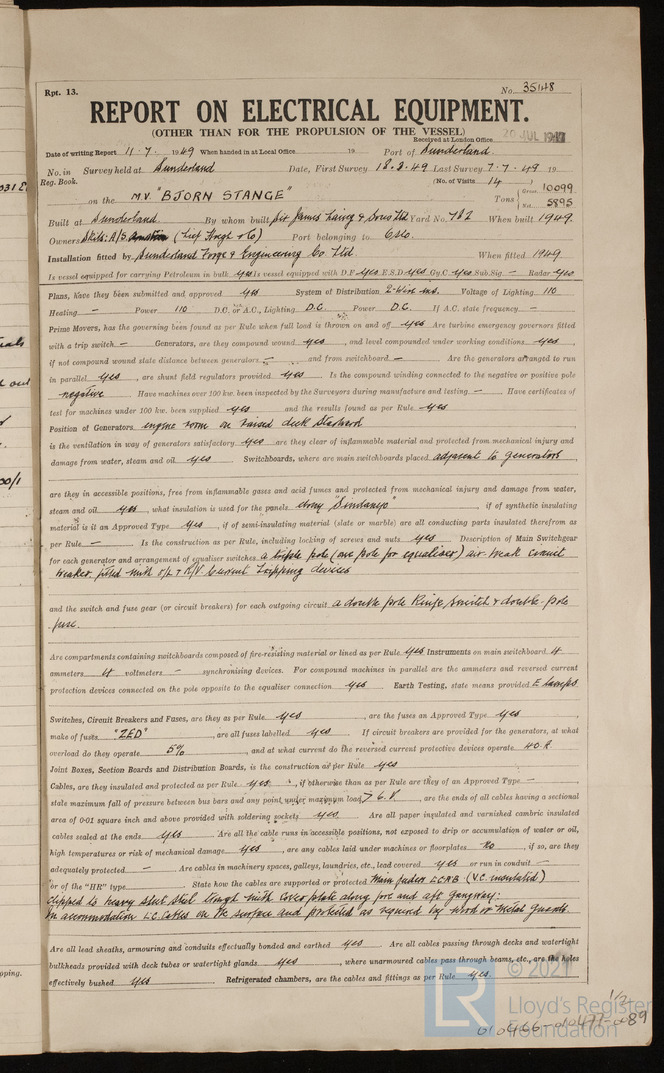 Rpt. 13.
No. 35148
REPORT ON ELECTRICAL EQUIPMENT.
(OTHER THAN FOR THE PROPULSION OF THE VESSEL)
Received at London Office 20 JUL 1949
Date of writing Report 11.7. 1949 When handed in at Local Office 19 Port of Sunderland
No. in Survey held at Sunderland Date, First Survey 18.3.49 Last Survey 7.7.49 19
Reg. Book. (No. of Visits 14)
on the M.V. "BJORN STANGE" Tons Gross 10099 Net 5895
Built at Sunderland By whom built Sir James Laing & Sons Ltd Yard No. 782 When built 1949
Owners Skibs A/S (Leif Hoegh & Co) Port belonging to Oslo
Installation fitted by Sunderland Forge & Engineering Co Ltd. When fitted 1949
Is vessel equipped for carrying Petroleum in bulk yes Is vessel equipped with D.F. yes E.S.D. yes Gy.C. yes Sub.Sig. – Radar yes
Plans, have they been submitted and approved yes System of Distribution 2-wire ins. Voltage of Lighting 110
Heating – Power 110 D.C. or A.C., Lighting D.C. Power D.C. If A.C. state frequency –
Prime Movers, has the governing been found as per Rule when full load is thrown on and off yes Are turbine emergency governors fitted
with a trip switch – Generators, are they compound wound yes, and level compounded under working conditions yes,
if not compound wound state distance between generators – and from switchboard – Are the generators arranged to run
in parallel yes, are shunt field regulators provided yes Is the compound winding connected to the negative or positive pole
negative Have machines over 100 kw. been inspected by the Surveyors during manufacture and testing – Have certificates of
test for machines under 100 kw. been supplied yes and the results found as per Rule yes
Position of Generators engine room on raised deck Starboard,
is the ventilation in way of generators satisfactory yes are they clear of inflammable material and protected from mechanical injury and
damage from water, steam and oil yes Switchboards, where are main switchboards placed adjacent to generators,
are they in accessible positions, free from inflammable gases and acid fumes and protected from mechanical injury and damage from water,
steam and oil yes, what insulation is used for the panels ebony "Sindanyo", if of synthetic insulating
material is it an Approved Type yes, if of semi-insulating material (slate or marble) are all conducting parts insulated therefrom as
per Rule – Is the construction as per Rule, including locking of screws and nuts yes Description of Main Switchgear
for each generator and arrangement of equaliser switches a triple pole (one pole for equaliser) air break circuit
breaker fitted with o/L & R/V Current Tripping devices
and the switch and fuse gear (or circuit breakers) for each outgoing circuit a double pole Knife switch & double-pole
fuse.
Are compartments containing switchboards composed of fire-resisting material or lined as per Rule yes Instruments on main switchboard 4
ammeters 4 voltmeters – synchronising devices. For compound machines in parallel are the ammeters and reversed current
protection devices connected on the pole opposite to the equaliser connection yes Earth Testing, state means provided E lamps
Switches, Circuit Breakers and Fuses, are they as per Rule yes, are the fuses an Approved Type yes,
make of fuses "ZED", are all fuses labelled yes If circuit breakers are provided for the generators, at what
overload do they operate 5%, and at what current do the reversed current protective devices operate 40.A
Joint Boxes, Section Boards and Distribution Boards, is the construction as per Rule yes
Cables, are they insulated and protected as per Rule yes, if otherwise than as per Rule are they of an Approved Type –,
state maximum fall of pressure between bus bars and any point under maximum load 6.V, are the ends of all cables having a sectional
area of 0·01 square inch and above provided with soldering sockets yes Are all paper insulated and varnished cambric insulated
cables sealed at the ends yes Are all the cable runs in accessible positions, not exposed to drip or accumulation of water or oil,
high temperatures or risk of mechanical damage yes, are any cables laid under machines or floorplates No, if so, are they
adequately protected – Are cables in machinery spaces, galleys, laundries, etc., lead covered yes or run in conduit –
or of the "HR" type State how the cables are supported or protected Main feeders LCAB (V.C. insulated)
clipped to heavy sheet steel trough with cover plate along fore and aft gangway:
In accommodation L.C. Cables on the surface and protected as required by wood or metal guards.
Are all lead sheaths, armouring and conduits effectually bonded and earthed yes Are all cables passing through decks and watertight
bulkheads provided with deck tubes or watertight glands yes, where unarmoured cables pass through beams, etc., are the holes
effectively bushed yes Refrigerated chambers, are the cables and fittings as per Rule yes.
© 2021
Lloyd's Register
Foundation
1/2
010466-010477-0089